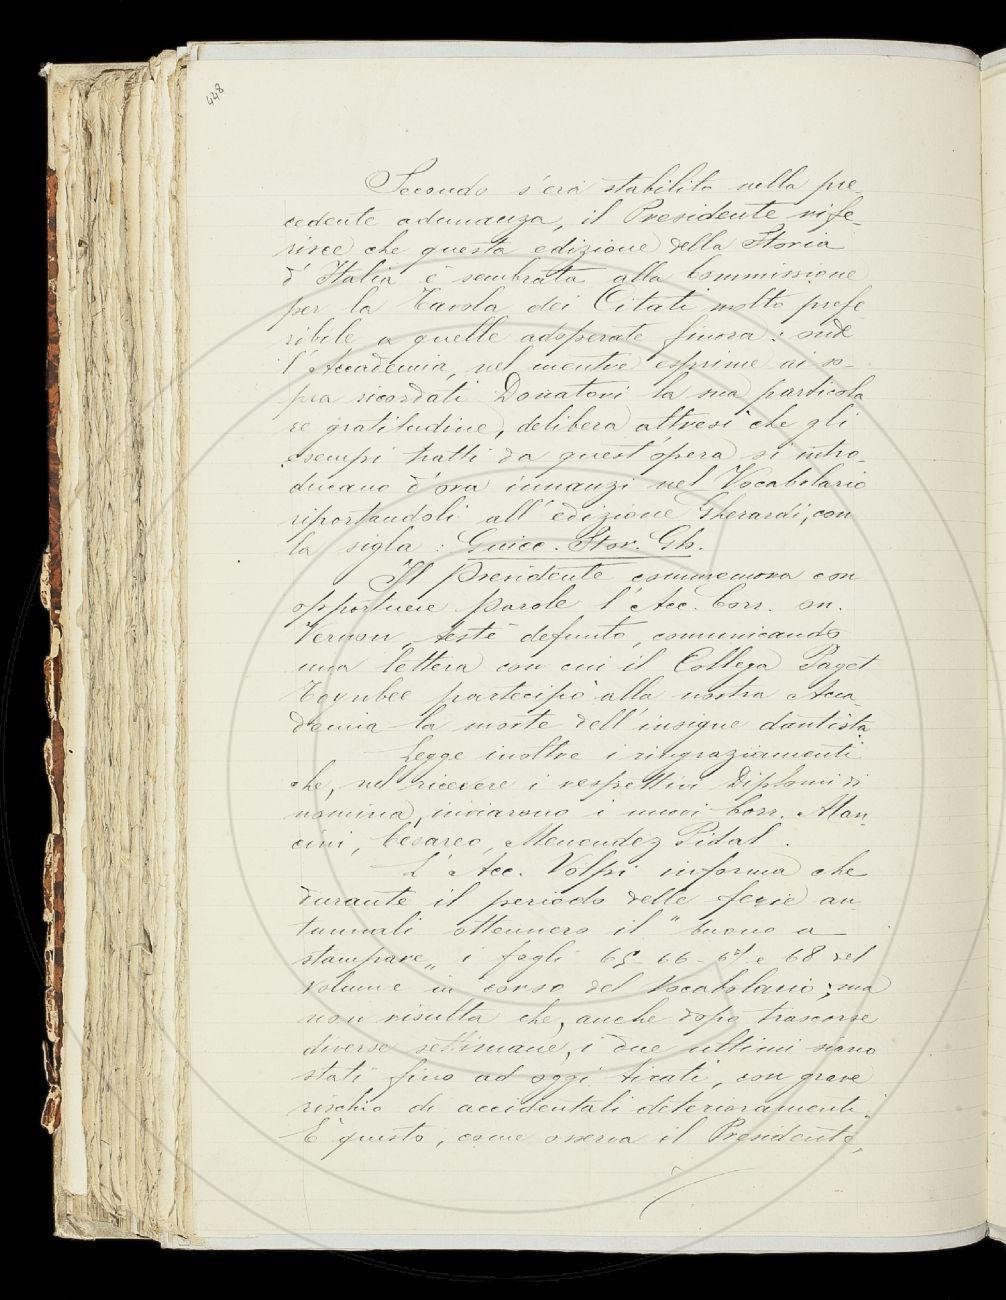 448
Secondo s'era stabilito nella pre-
cedente adunanza, il Presidente rife-
risce che questa edizione della Storia
d'Italia è sembrata alla Commissione
per la Tavola dei Citati molto prefe-
ribile a quelle adoperate finora: onde
l'Accademia, nel mentre esprime ai so-
pra ricordati Donatori la sua particola
re gratitudine, delibera altresì che gli
esempi tratti da quest'opera si intro-
ducano d'ora innanzi nel Vocabolario
riportandoli all'edizione Gherardi, con
la sigla: Guicc. Stor. Gh.
Il Presidente commemora con
opportune parole l'Acc. Corr. on.
Vernon, testè defunto, comunicando
una lettera con cui il Collega Paget
Toynbee partecipò alla nostra Acca-
demia la morte dell'insigne dantista
Legge inoltre i ringraziamenti
che, nel ricevere i respettivi Diplomi di
nomina, inviarono i nuovi Corr. Man-
cini, Cesareo, Menendez Pidal.
L'Acc. Volpi informa che
durante il periodo delle ferie au-
tunnali ottennero il "buono a
stampare„ i fogli 65-66-67 e 68 del
volume in corso del Vocabolario; ma
non risulta che, anche dopo trascorse
diverse settimane, i due ultimi siano
stati fino ad oggi tirati, con grave
rischio di accidentali deterioramenti.
E questo, come osserva il Presidente,